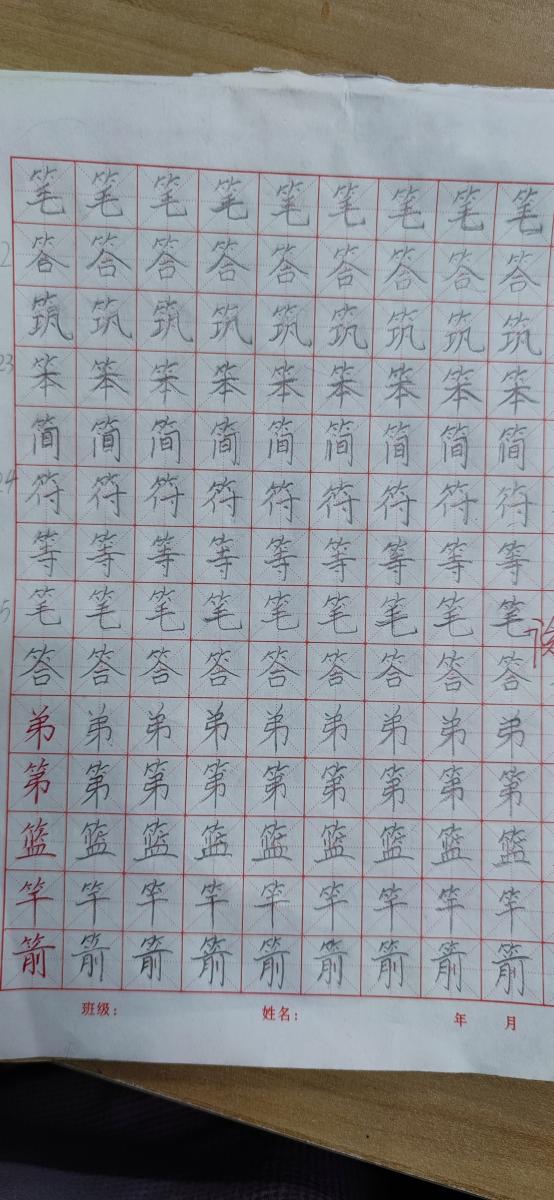 笔笔笔笔笔笔笔笔笔
2答答答答答答答答答
筑筑筑筑筑筑筑筑筑
23笨笨笨笨笨笨笨笨笨
简简简简简简简简简
24符符符符符符符符符
等等等等等等等等等
5笔笔笔笔笔笔笔笔笔
答答答答答答答答答
弟弟弟弟弟弟弟弟弟
第第第第第第第第第
篮篮篮篮篮篮篮篮篮
竿竿竿竿竿竿竿竿竿
箭箭箭箭箭箭箭箭箭
班级： 姓名： 年 月